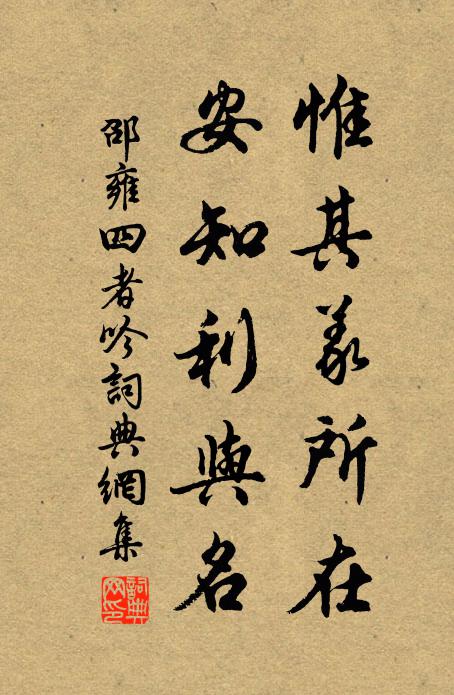 惟其義所在
安知利與名
邵雍四者吟詞典網集
詞典网印